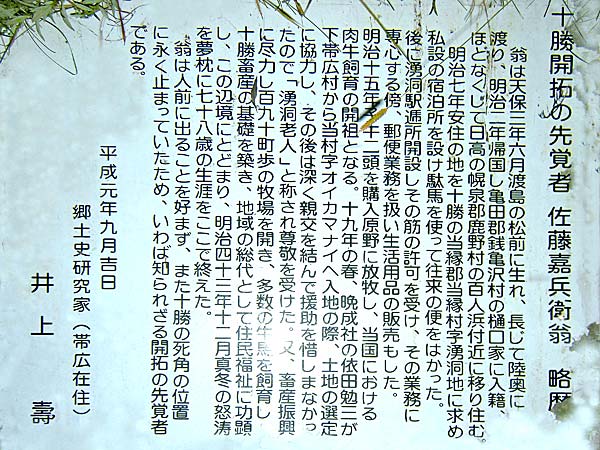 十勝開拓の先覚者 佐藤嘉兵衛翁 略歴
翁は天保三年六月渡島の松前に生れ、長じて陸奥に
渡り、明治二年帰国し亀田郡銭亀沢村の樋口家に入籍、
ほどなくして日高の幌泉郡鹿野村の百人浜付近に移り住む。
明治七年安住の地を十勝の当縁郡当縁村字湧洞地に求め
私設の宿泊所を設け駄馬を使って往来の便をはかった。
後に湧洞駅逓所開設しその筋の許可を受け、その業務に
専心する傍、郵便業務を扱い生活用品の販売もした。
明治十五年 十二頭を購入原野に放牧し、当国における
肉牛飼育の開祖となる。十九年の春、晩成社の依田勉三が
下帯広村から当村字オイカマナイへ入地の際、土地の選定
に協力し、その後は深く親交を結んで援助を惜しまなかっ
たので「湧洞老人」と称され尊敬を受けた。又、畜産振興
に尽力し百九十町歩の牧場を開き、多数の牛馬を飼育し
十勝畜産の基礎を築き、地域の総代として住民福祉に功顕
し、この辺境にとどまり、明治四十三年十二月真冬の怒涛
を夢枕に七十八歳の生涯をここで終えた。
翁は人前に出ることを好まず、また十勝の死角の位置
に永く止まっていたため、いわば知られざる開拓の先覚者
である。
平成元年九月吉日
郷土史研究家（帯広在住）
井上 壽